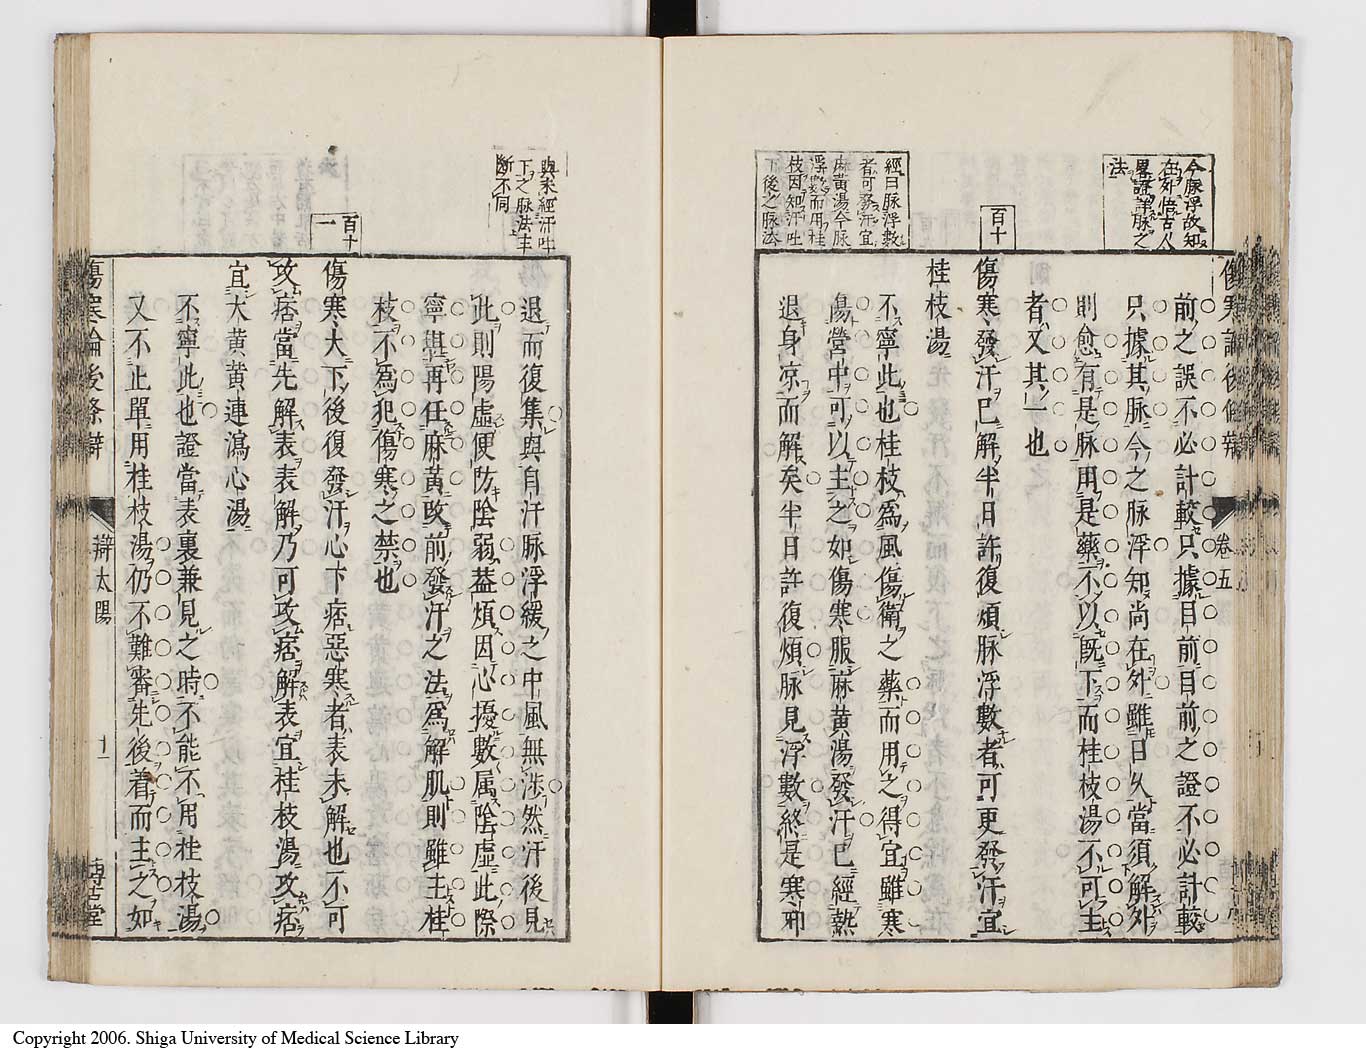 今脉浮故知
在外悟古人
畧證詳脉之
法
傷寒論後條辨
卷五
前之誤不必計較只據目前目前之證不必計較
只據其脉今之脉浮知尚在外雖日久當須解外
則愈有是脉用是藥不以既下而桂枝湯不可主
者又其一也
百十
傷寒發汗已解半日許復煩脉浮數者可更發汗宜
桂枝湯
經曰脉浮數
者可發汗宜
麻黄湯今脉
浮數而用桂
枝因知汗吐
下後之脉法
不寧此也桂枝為風傷衛之藥而用之得宜雖寒
傷營中可以主之如傷寒服麻黄湯發汗已經熱
退身凉而解矣半日許復煩脉見浮數終是寒邪
與未經汗吐
下之脉法主
斷不同
退而復集與自汗脉浮緩之中風無涉然汗後見
此則陽虛便防陰弱葢煩因心擾數属陰虛此際
寧與再任麻黄改前發汗之法為解肌則雖主桂
枝不為犯傷寒之禁也
百十
一
傷寒大下後復發汗心下痞惡寒者表未解也不可
攻痞當先解表表解乃可攻痞解表宜桂枝湯攻痞
宜大黄黄連瀉心湯
不寧此也證當表裏兼見之時不能不用桂枝湯
又不止單用桂枝湯仍不難審先後着而主之如
傷寒論後條辯
辯太陽
十一
博古堂
Copyright 2006. Shiga University of Medical Science Library